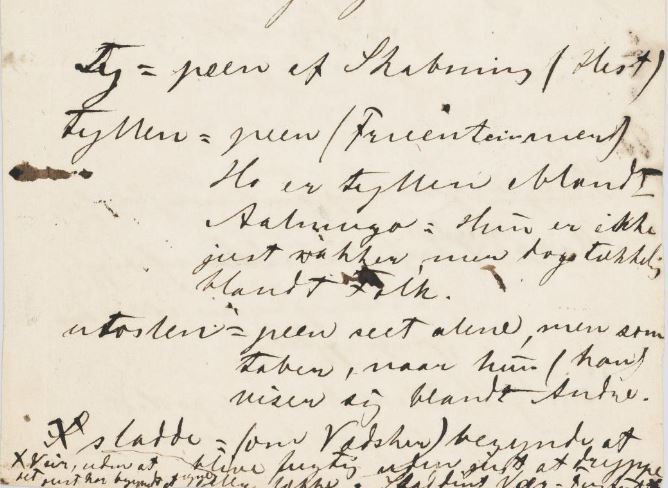 Ty = peen af Skabning (Hest)
tyllen = peen (Fruentimmer)
Ho er tyllen iblandt
Aalmugo = Hun er ikke
just wakker, men dog tækkelig
blandt Folk.
utosten = peen seet alene, men som
taber, naar hun (han)
viser sig blandt Andre.
X sladde = (om Vædsker) begynde at
X Vær, uden at blive fugtig uden just at dryppe